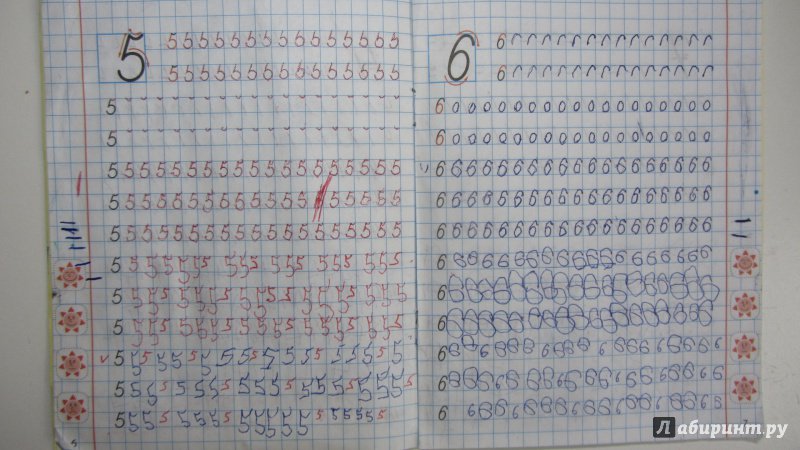 5
5 5 5 5 5 5 5 5 5 5 5 5 5 5 5
5 5 5 5 5 5 5 5 5 5 5 5 5 5 5
5
5
5 5 5 5 5 5 5 5 5 5 5 5 5 5 5 5 5 5 5
5 5 5 5 5 5 5 5 5 5 5 5 5 5 5 5 5 5
5 5 5 5 5 5 5 5 5 5 5 5 5 5 5 5 5 5 5
5 5 5 5 5 5 5 5 5 5 5 5 5 5 5
5 5 5 5 5 5 5 5 5 5 5 5 5 5 5 5 5
5 5 5 5 5 5 5 5 5 5 5 5 5 5 5 5 5
5 5 5 5 5 5 5 5 5 5 5 5 5 5 5 5 5 5
5 5 5 5 5 5 5 5 5 5 5 5 5 5 5 5 5 5
5 5 5 5 5 5 5 5 5 5 5 5 5 5 5 5 5
6
6
6
6
6 0 0 0 0 0 0 0 0 0 0 0 0 0 0 0 0 0
6 0 0 0 0 0 0 0 0 0 0 0 0 0 0 0 0 0
6 6 6 6 6 6 6 6 6 6 6 6 6 6 6 6 6 6
6 6 6 6 6 6 6 6 6 6 6 6 6 6 6 6 6 6
6 6 6 6 6 6 6 6 6 6 6 6 6 6 6 6 6 6
6 6 6 6 6 6 6 6 6 6 6 6 6 6 6 6 6 6
6 6 6 6 6 6 6 6 6 6 6 6 6 6 6 6 6 6
6 6 6 6 6 6 6 6 6 6 6 6 6 6 6 6 6 6
6 6 6 6 6 6 6 6 6 6 6 6 6 6 6 6 6
6 6 6 6 6 6 6 6 6 6 6 6 6 6 6 6 6 6
6 6 6 6 6 6 6 6 6 6 6 6 6 6 6 6 6
6
7
Лабиринт.ру